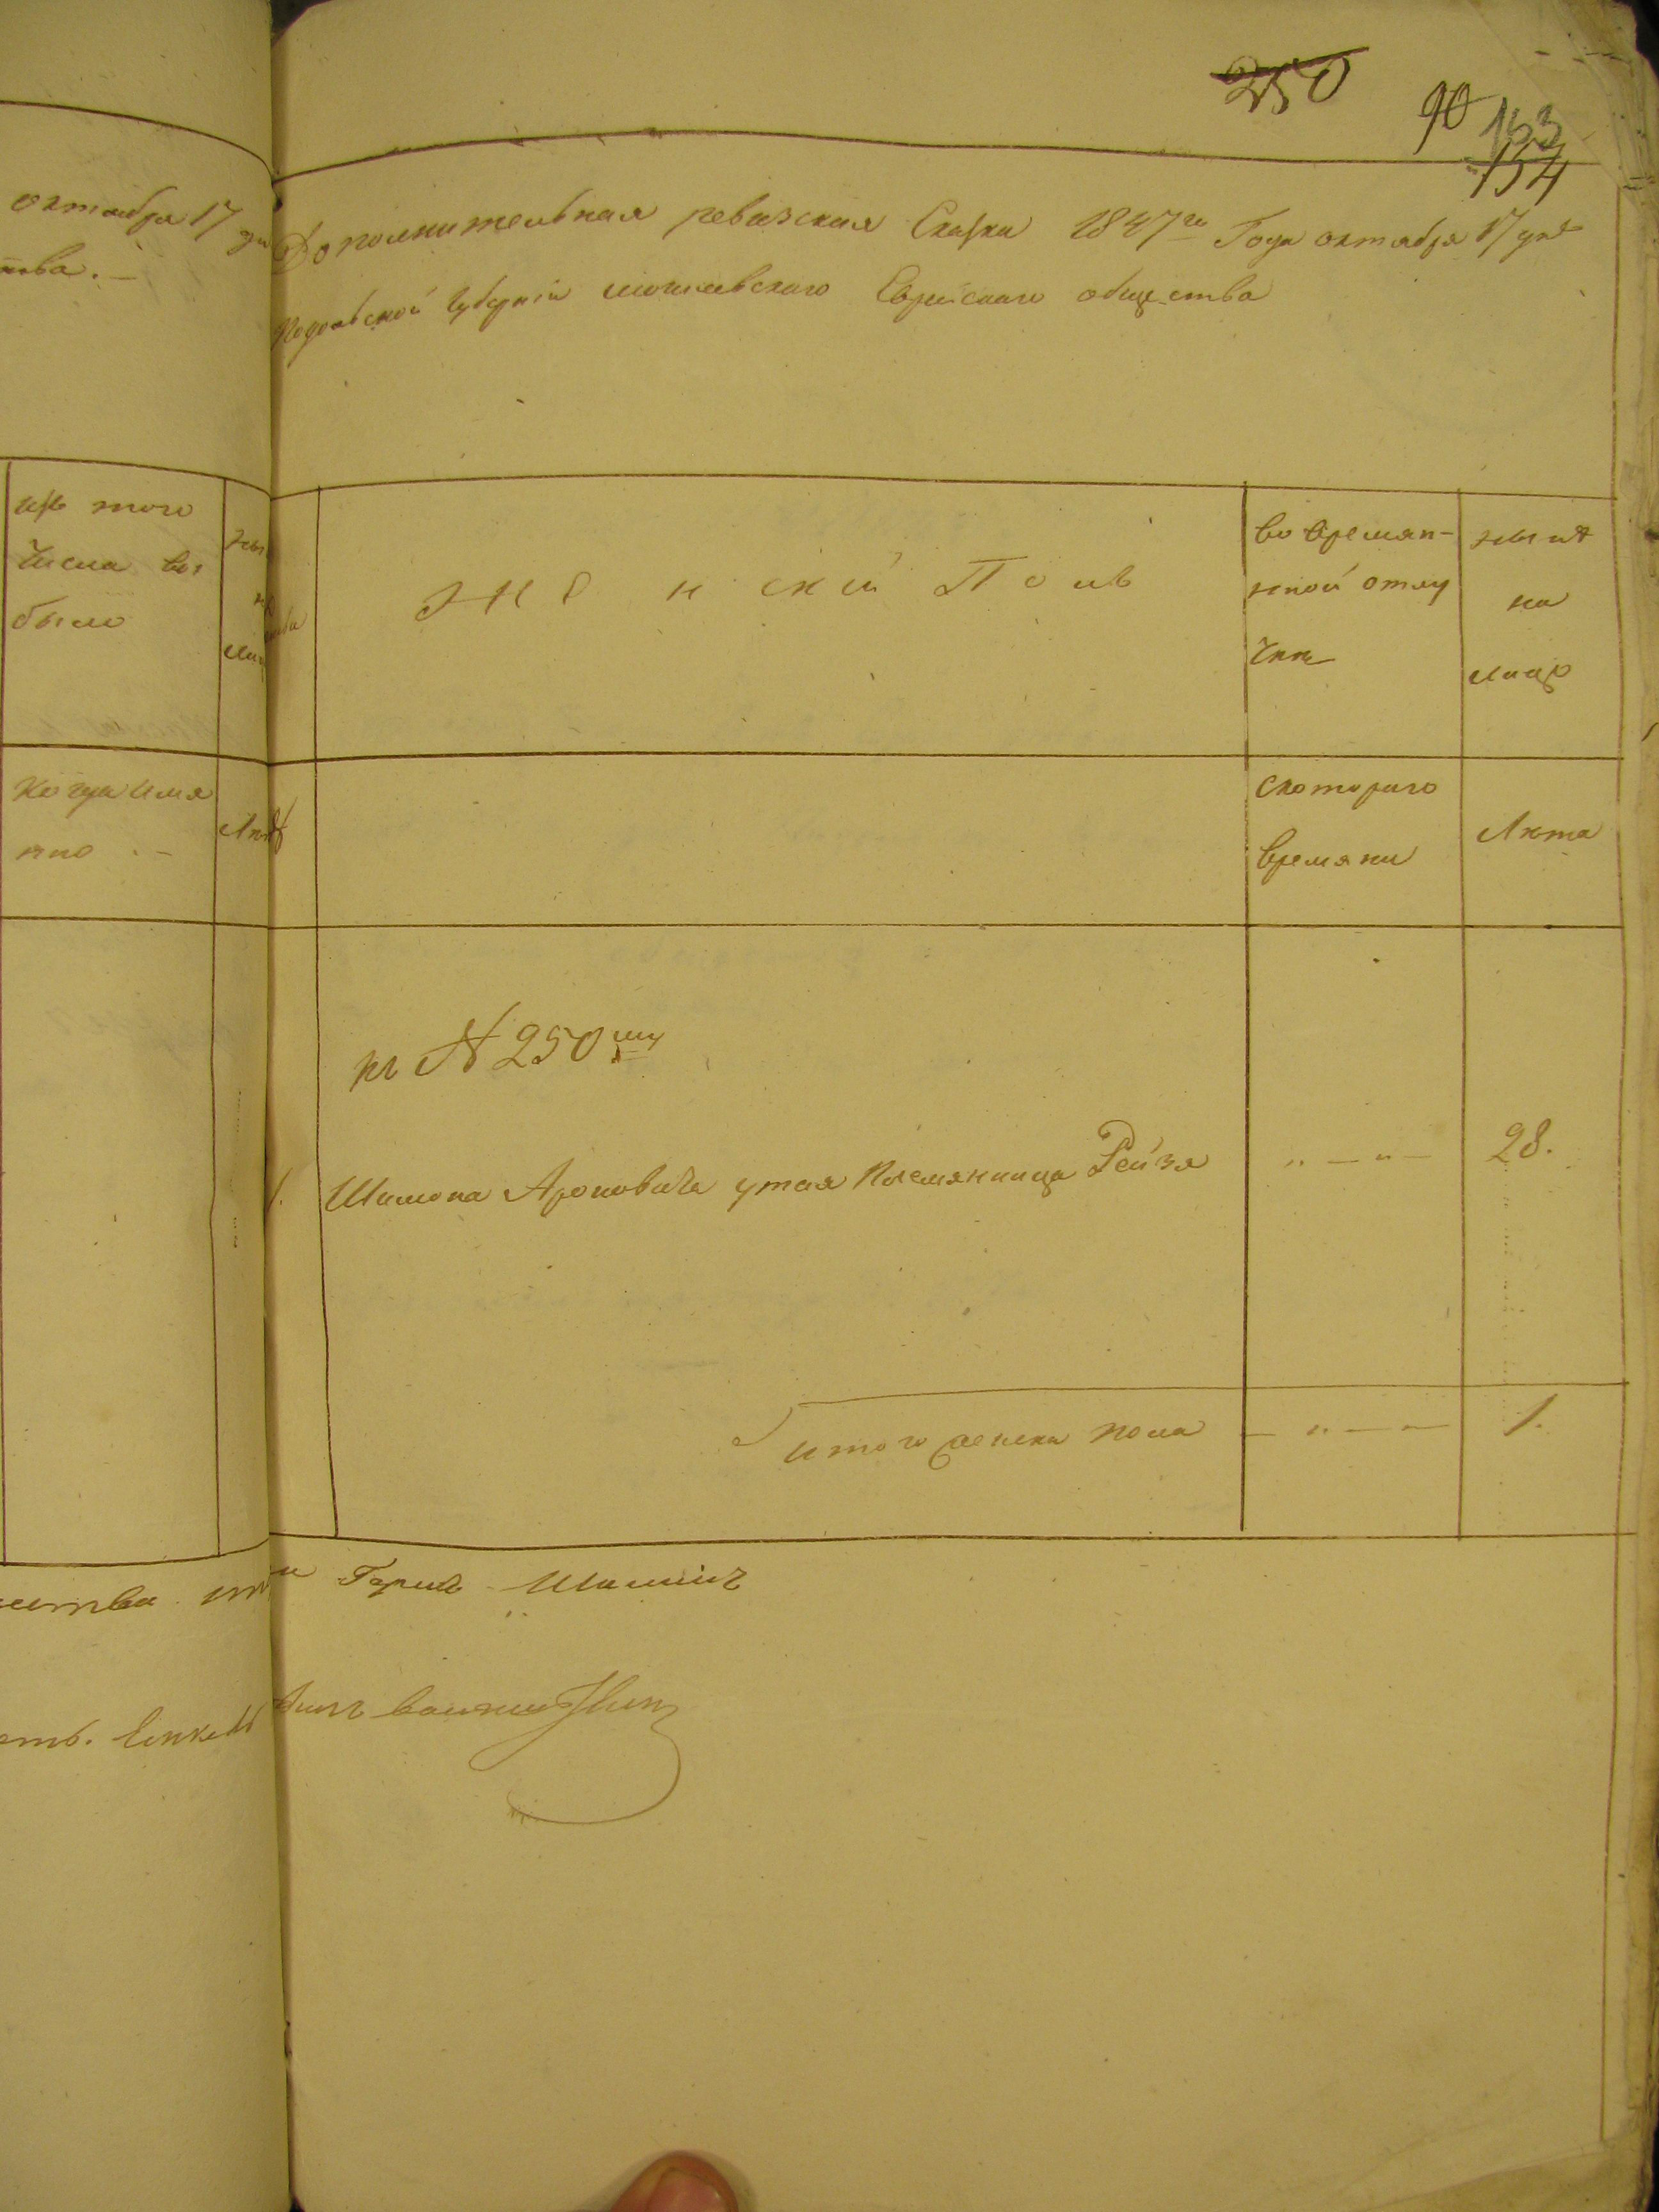 250
90 163
154
октября 17 дня
Дополнительная ревизская Сказка 1847го Года октября 17 дня
Подольской Губерніи могилевскаго Еврейскаго общества
изъ того
Числа вы
было
Женский Полъ
во времян-
ной отлу
чки
нынѣ
на
лицо
когда имя
нно . –
Лѣта
скотораго
времяни
Лѣта
къ № 250му
1.
Шимона Ароновича утая племянница Рейзя
" — " —
28.
итого женска пола
— " — —
1.